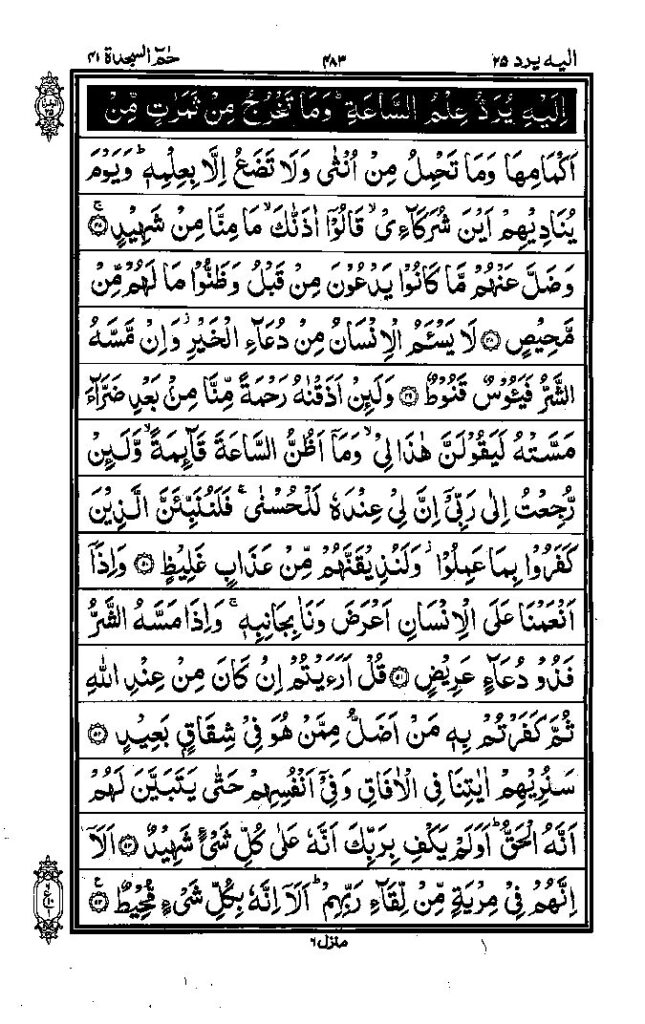 الیه یرد ۲۵ ۴۸۳ حٰمٓ السجدة ۴۱
اِلَيْهِ يُرَدُّ عِلْمُ السَّاعَةِ ؕ وَمَا تَخْرُجُ مِنْ ثَمَرٰتٍ مِّنْ
اَكْمَامِهَا وَمَا تَحْمِلُ مِنْ اُنْثٰى وَلَا تَضَعُ اِلَّا بِعِلْمِهٖ ؕ وَيَوْمَ
يُنَادِيْهِمْ اَيْنَ شُرَكَآءِىْ ۙ قَالُوْٓا اٰذَنّٰكَ ۙ مَا مِنَّا مِنْ شَهِيْدٍ ۚ ﴿۴۷﴾
وَضَلَّ عَنْهُمْ مَّا كَانُوْا يَدْعُوْنَ مِنْ قَبْلُ وَظَنُّوْا مَا لَهُمْ مِّنْ
مَّحِيْصٍ ﴿۴۸﴾ لَا يَسْـَٔمُ الْاِنْسَانُ مِنْ دُعَآءِ الْخَيْرِ ۫ وَاِنْ مَّسَّهُ
الشَّرُّ فَيَـُٔوْسٌ قَنُوْطٌ ﴿۴۹﴾ وَلَئِنْ اَذَقْنٰهُ رَحْمَةً مِّنَّا مِنْۢ بَعْدِ ضَرَّآءَ
مَسَّتْهُ لَيَقُوْلَنَّ هٰذَا لِىْ ۙ وَمَآ اَظُنُّ السَّاعَةَ قَآئِمَةً ۙ وَّلَئِنْ
رُّجِعْتُ اِلٰى رَبِّىْٓ اِنَّ لِىْ عِنْدَهٗ لَلْحُسْنٰى ۚ فَلَنُنَبِّئَنَّ الَّذِيْنَ
كَفَرُوْا بِمَا عَمِلُوْا ۫ وَلَنُذِيْقَنَّهُمْ مِّنْ عَذَابٍ غَلِيْظٍ ﴿۵۰﴾ وَاِذَآ
اَنْعَمْنَا عَلَى الْاِنْسَانِ اَعْرَضَ وَنَاٰ بِجَانِبِهٖ ۚ وَاِذَا مَسَّهُ الشَّرُّ
فَذُوْ دُعَآءٍ عَرِيْضٍ ﴿۵۱﴾ قُلْ اَرَءَيْتُمْ اِنْ كَانَ مِنْ عِنْدِ اللّٰهِ
ثُمَّ كَفَرْتُمْ بِهٖ مَنْ اَضَلُّ مِمَّنْ هُوَ فِىْ شِقَاقٍۢ بَعِيْدٍ ﴿۵۲﴾
سَنُرِيْهِمْ اٰيٰتِنَا فِى الْاٰفَاقِ وَفِىْٓ اَنْفُسِهِمْ حَتّٰى يَتَبَيَّنَ لَهُمْ
اَنَّهُ الْحَقُّ ؕ اَوَلَمْ يَكْفِ بِرَبِّكَ اَنَّهٗ عَلٰى كُلِّ شَىْءٍ شَهِيْدٌ ﴿۵۳﴾ اَلَآ
اِنَّهُمْ فِىْ مِرْيَةٍ مِّنْ لِّقَآءِ رَبِّهِمْ ؕ اَلَآ اِنَّهٗ بِكُلِّ شَىْءٍ مُّحِيْطٌ ﴿۵۴﴾
منزل ۶